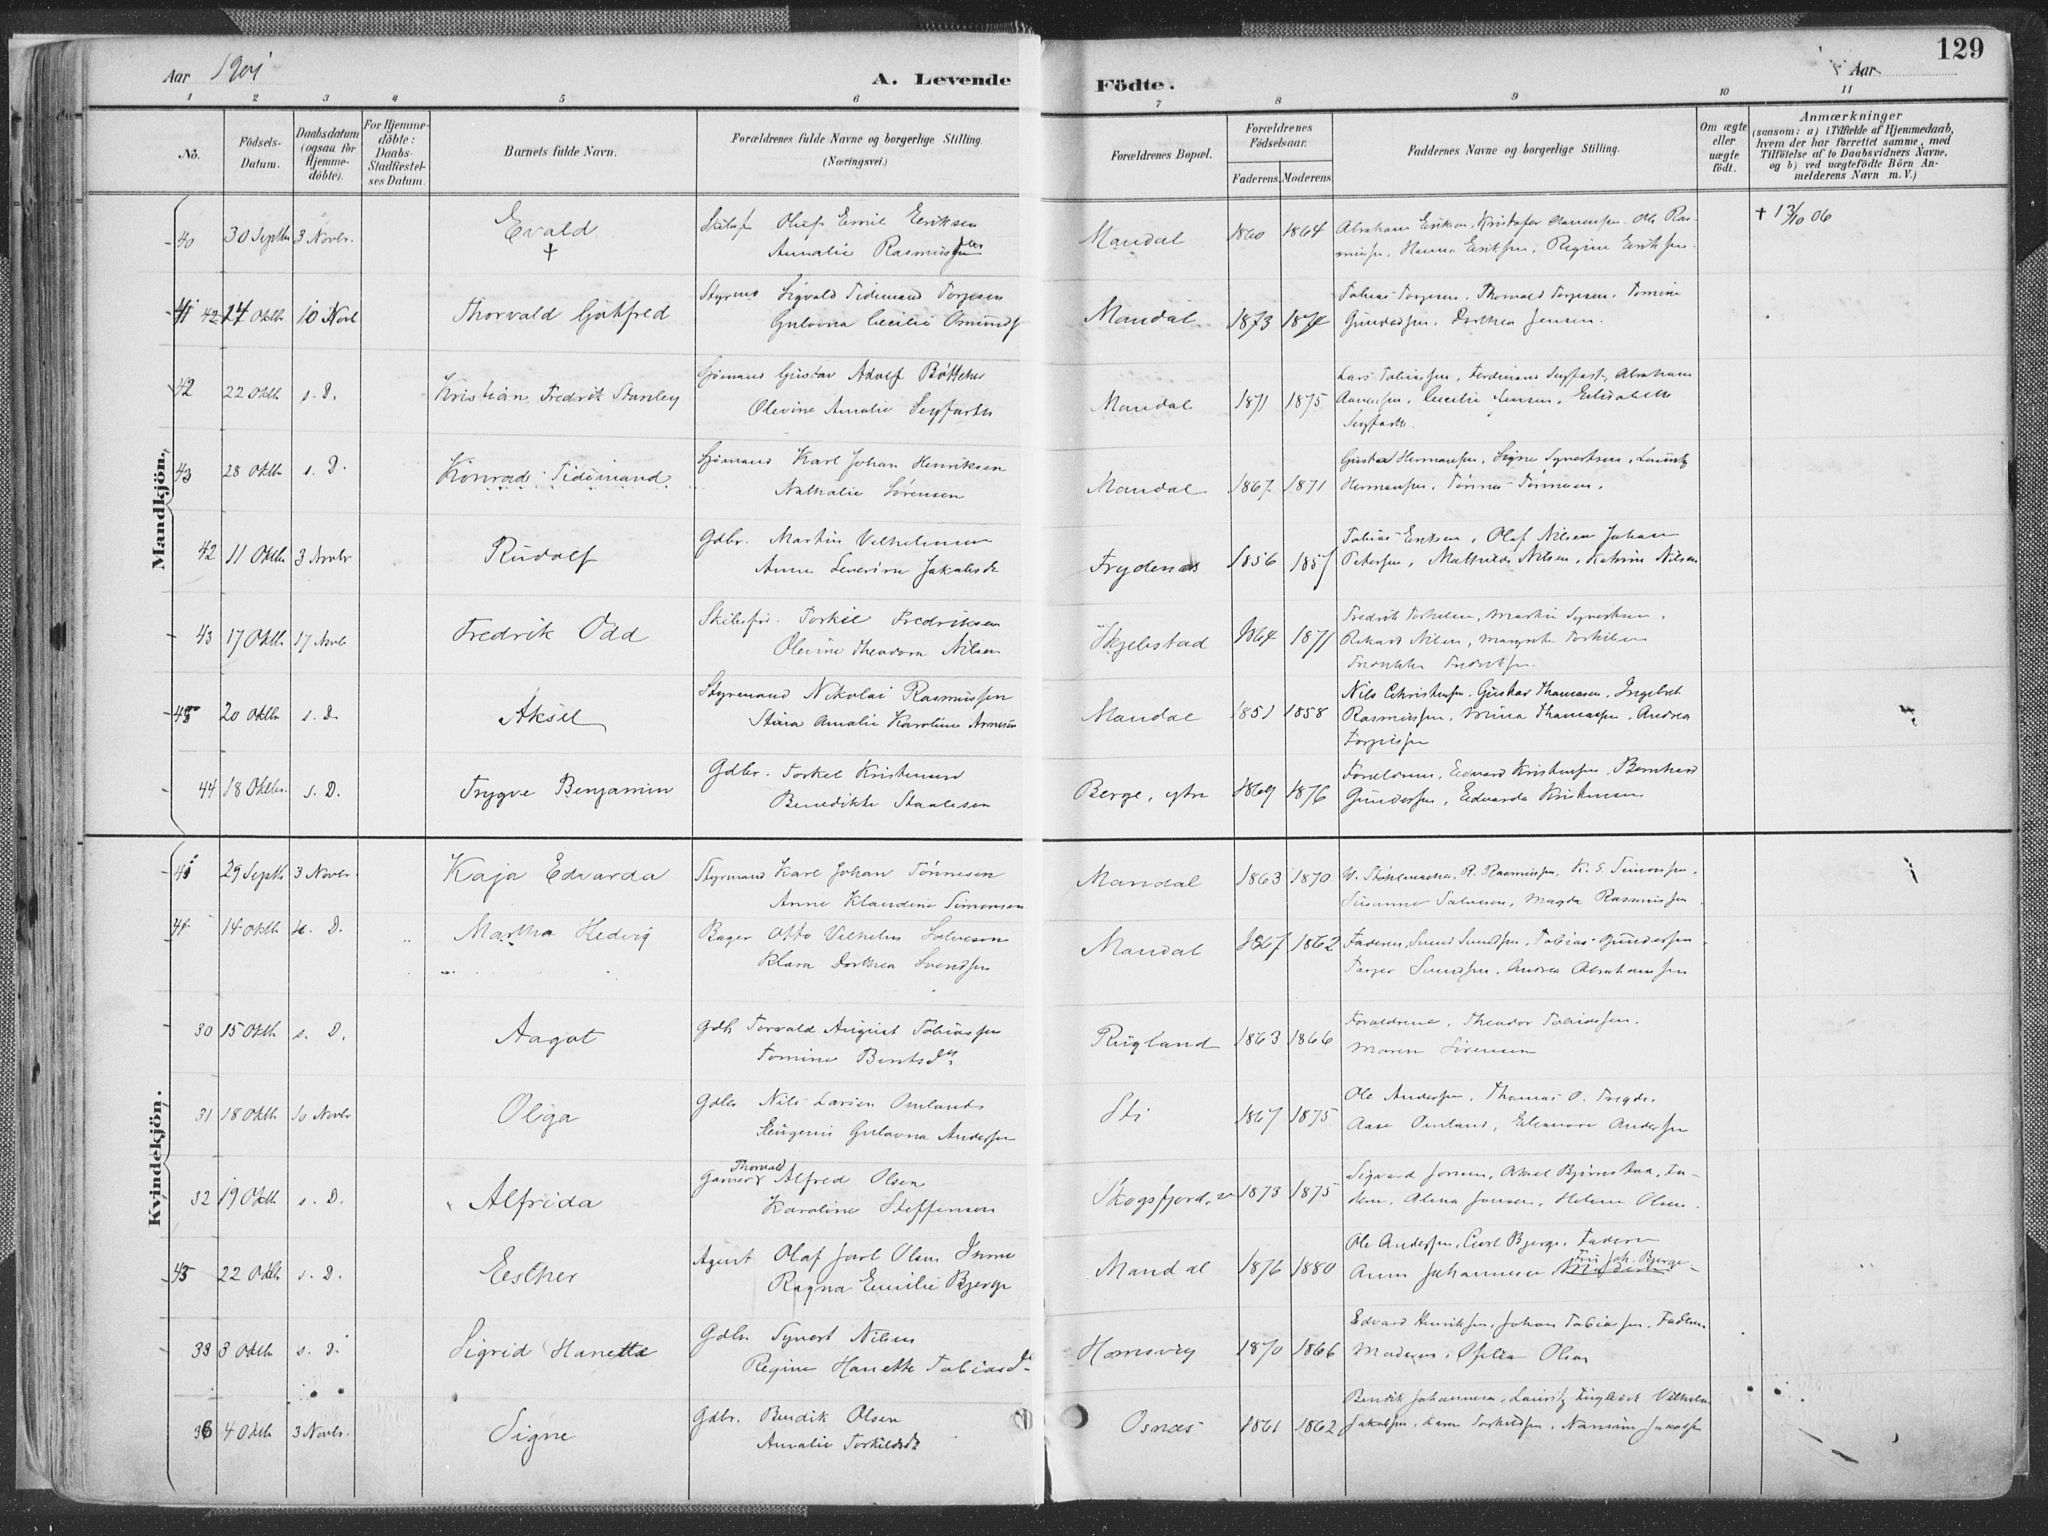 129
Aar 1901
A. Levende
Födte.
Aar
1 2 3 4 5 6 7 8 9 10 11
No. Födsels-Datum. Daabsdatum (ogsaa for Hjemme-döbte). For Hjemme-döbte: Daabs-Stadfæstel-ses Datum. Barnets fulde Navn. Forældrenes fulde Navne og borgerlige Stilling. (Næringsvei.) Forældrenes Bopæl. Forældrenes Födselsaar. Faderens. Moderens. Faddernes Navne og borgerlige Stilling. Om ægte eller uægte födt. Anmærkninger (saasom: a) i Tilfælde af Hjemmedaab, hvem der har forrettet samme, med Tilföielse af to Daabsvidners Navne, og b) ved uægtefödte Börn Anmelderens Navn m. V.)
Mandkjön.
40 30 Septbr 3 Novbr. Evald Oluf Emil Eriksen Mandal 1860 1864 Abraham Eriksen, Kristofer Ole Ras-
† Amalie Rasmus Hanna Eriksen, Regine Eriksen
† 13/10 06
41 10 Thorvald Gotfred Styrmd Sigvald Tidemand Torjesen Mandal 1873 1874 Tobias Torjesen, Thorvald Torjesen, Tomine
Gulovna Cecilie Osmunds Gundersen, Dorthea Jensen.
42 22 Oktbr s. D. Kristian Fredrik Stanley Sjömand Gustav Adolf Böttcher Mandal 1871 1875 Lars Tobiassen, Ferdinand Seyfarth, Abraham
Olevine Amalie Seyfarth Cecilie Jensen, Elisabeth
Seyfarth.
43 28 Oktbr s. D. Konrad Tidemand Sjömand Karl Johan Henriksen Mandal 1867 1871 Gustav Hermansen, Signe Syvertsen, Lauritz
Nathalie Sörensen Hermansen, Tönnes Tönnesen.
42 11 Oktbr 3 Novbr Rudolf Gdbr. Martin Vilhelmsen Frydenas 1856 1857 Tobias Eriksen, Olaf Nilsen Johan
Anne Severine Jakobsdt Petersen, Mathilde Nilsen, Katrine Nilsen
43 17 Oktbr 17 Novbr Fredrik Odd Skibsför. Torkil Fredriksen Skjebstad 1864 1871 Fredrik Torkelsen, Martin Syvertsen,
Olevine Theodora Nilsen Rikard Nilsen, Margrete Torkilsen
45 20 Oktbr s. D. Aksel Styrmand Nikolai Rasmussen Mandal 1851 1858 Nils Christensen, Gustav Thomasen, Ingebret
Stina Amalie Karoline Arnesen Rasmussen, Mina Thomassen, Andrea
44 18 Oktbr. s. D. Trygve Benjamin Gdbr. Torkel Kristensen Berge, ytre 1869 1876 Forældrene, Edvard Kristensen, Bernhard
Benedikte Staalesen Gundersen, Edvarda Kristensen
Kvindekjön.
29 Septbr 3 Novbr Kaja Edvarda Styrmand Karl Johan Tönnesen Mandal 1863 1870 R. Rasmussen, K. E. Simonsen,
Anne Klaudine Simonsen Susanne Salvesen, Magda Rasmussen
14 Oktbr s. D. Martha Hedvig Bager Otto Vilhelm Salveson Mandal 1867 1862 Faderen, Svend Svendsen, Tobias Gundersen
Klara Dorthea Svendsen Svendsen, Andrea Abrahamsen
30 15 Oktbr s. D. Aagot Gdbr Torvald August Tobiassen Rugland 1863 1866 Forældrene, Theodor Tobiassen,
Tomine Bentsdtr Maren Sörensen
31 18 Oktbr 10 Novbr Olga Gdbr Nils Larsen Omland Sti 1867 1875 Ole Andersen, Thomas O. Tregde,
Eugenie Gulovna Andersen Aase Omland, Eleanore Andersen
32 19 Oktbr s. D. Alfrida Garver Thorvald Alfred Olsen Skogsfjord, 1873 1875 Sigvard Jensen, Fa-
Karoline Steffensen deren, Alma Jensen, Helene Olsen.
45 22 Oktbr s. D. Eesther Agent Olaf Jarl Olsen Imme Mandal 1876 1880 Ole Andersen, Carl Bjerge, Faderen
Ragna Emilie Bjerge Anna Johannesen Fru Joh. Bjerge
33 3 Oktbr s. D. Sigrid Hanette Gdbr. Syvert Nilsen Homsvig 1870 1866 Edvard Henriksen, Johan Tobiassen, Faderen
Regine Hanette Tobiasdtr Moderen, Ofelia Olsen
36 4 Oktbr 3 Novbr. Signe Gdbr. Bendik Olsen Osnes 1861 1862 Bendik Johannesen, Lauritz Vilhelm
Amalie Torkildsdt Jakobsen, Torkildsen, Jakobsen